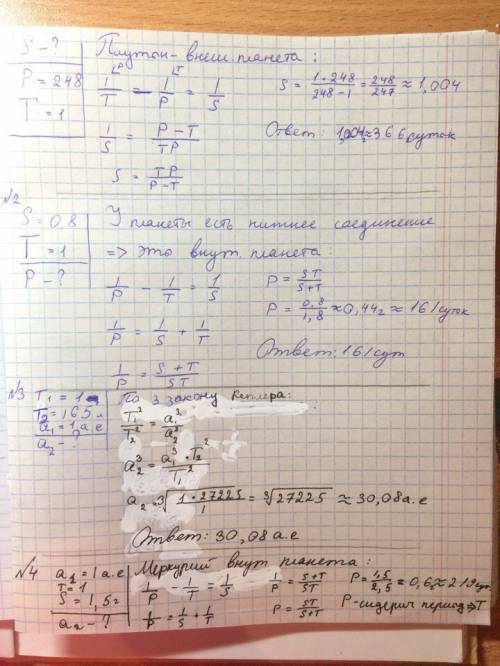 S - ?
P = 248
T = 1
Плутон - внеш. планета :
1/T - 1/P = 1/S
S = 1·248/248-1 = 248/247 ≈ 1,004
1/S = P-T/TP
Ответ: 1,004 ≈ 366 суток
S = TP/P-T
№2
S = 0,8
T = 1
P - ?
У планеты есть нижнее соединение
=> это внут. планета :
1/P - 1/T = 1/S
P = ST/S+T
1/P = 1/S + 1/T
P = 0,8/1,8 ≈ 0,44г ≈ 161 суток
1/P = S+T/ST
Ответ: 161 сут
№3
T₁ = 1
T₂ = 165 л
a₁ = 1 а е
a₂ - ?
По 3 закону Кеплера:
T₁²/T₂² = a₁³/a₂³
a₂³ = a₁³·T₂²/T₁²
a₂ = ³√1·27225/1 = ³√27225 ≈ 30,08 а.е
Ответ: 30,08 а.е
№4
a₁ = 1 а.е
T = 1
S = 1,5г
a₂ - ?
Меркурий внут планета :
1/P - 1/T = 1/S
1/P = S+T/ST
P = 1,5/2,5 ≈ 0,6г ≈ 219 сут
1/P = 1/S + 1/T
P = ST/S+T
P - сидерич период => T